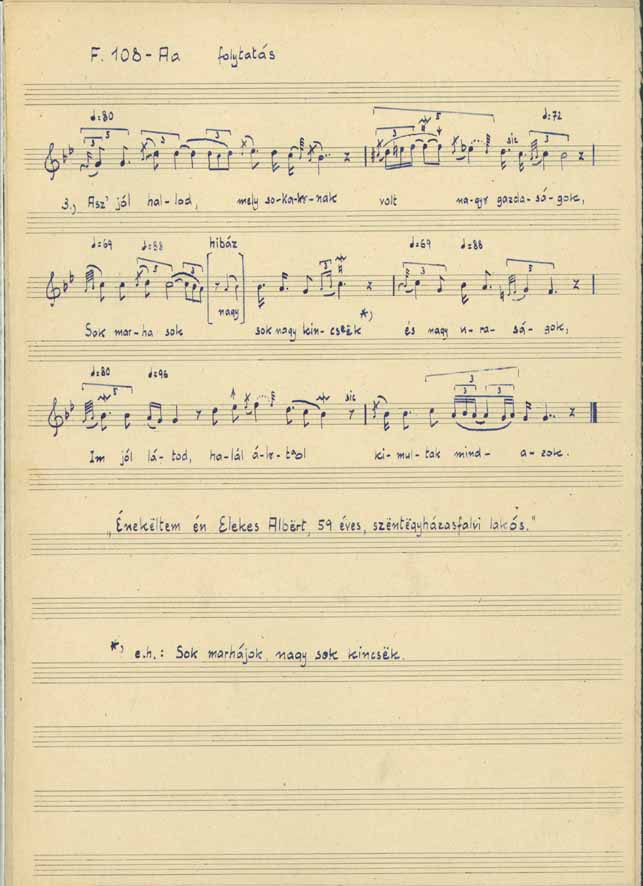 F. 108-Aa folytatás
♩=80 3 5 3 3 3 5 sic ♩=72 3
3., Asz' jól hal-lod, mely so-ka-kr-nak volt na-gyr gazda-sá-gok,
♩=69 ♩=88 hibáz ♩=69 ♩=88
5 3 3 3 5
nagy
Sok mar-ha sok sok nagy kin-cseëk *) és nagy u-ra-sá-gok,
♩=80 ♩=96 sic 3
5 3 3
Im jól lá-tod, ha-lál á-lr-tool ki-mul-tak mind-a-zok.
„Énekëltem én Elekes Albërt, 59 éves, szëntëgyházasfalvi lakós."
*) e.h.: Sok marhájok, nagy sok kincsëk.